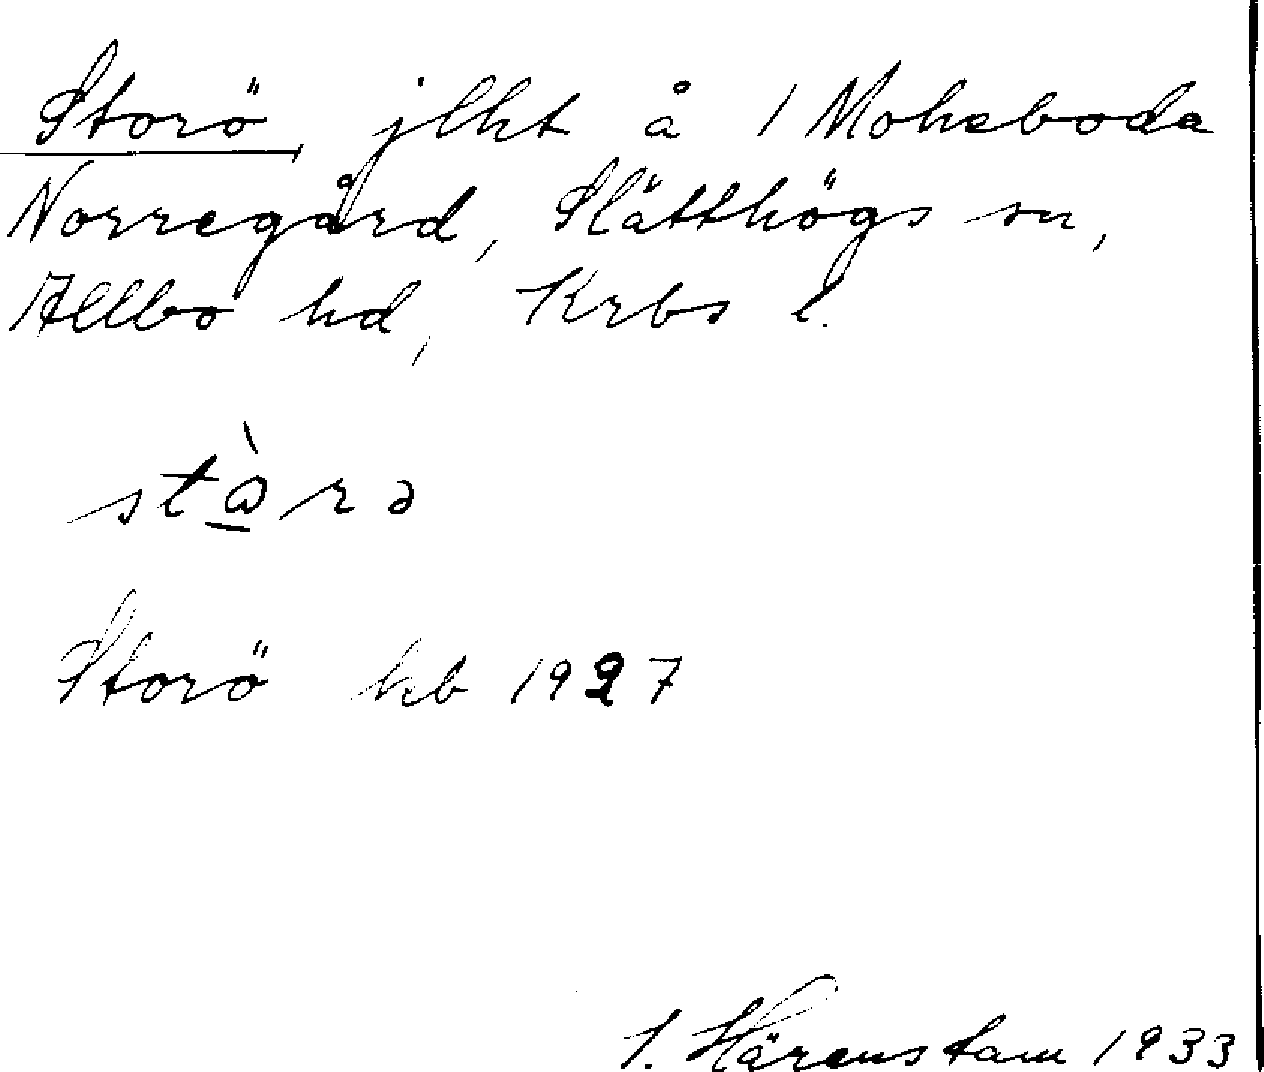 Storö jlht å 1 Moheboda
Norregård, Slätthögs sn,
Allbo hd, Krbs l.
stὼrə
Storö kb 1927
I. Härenstam 1933